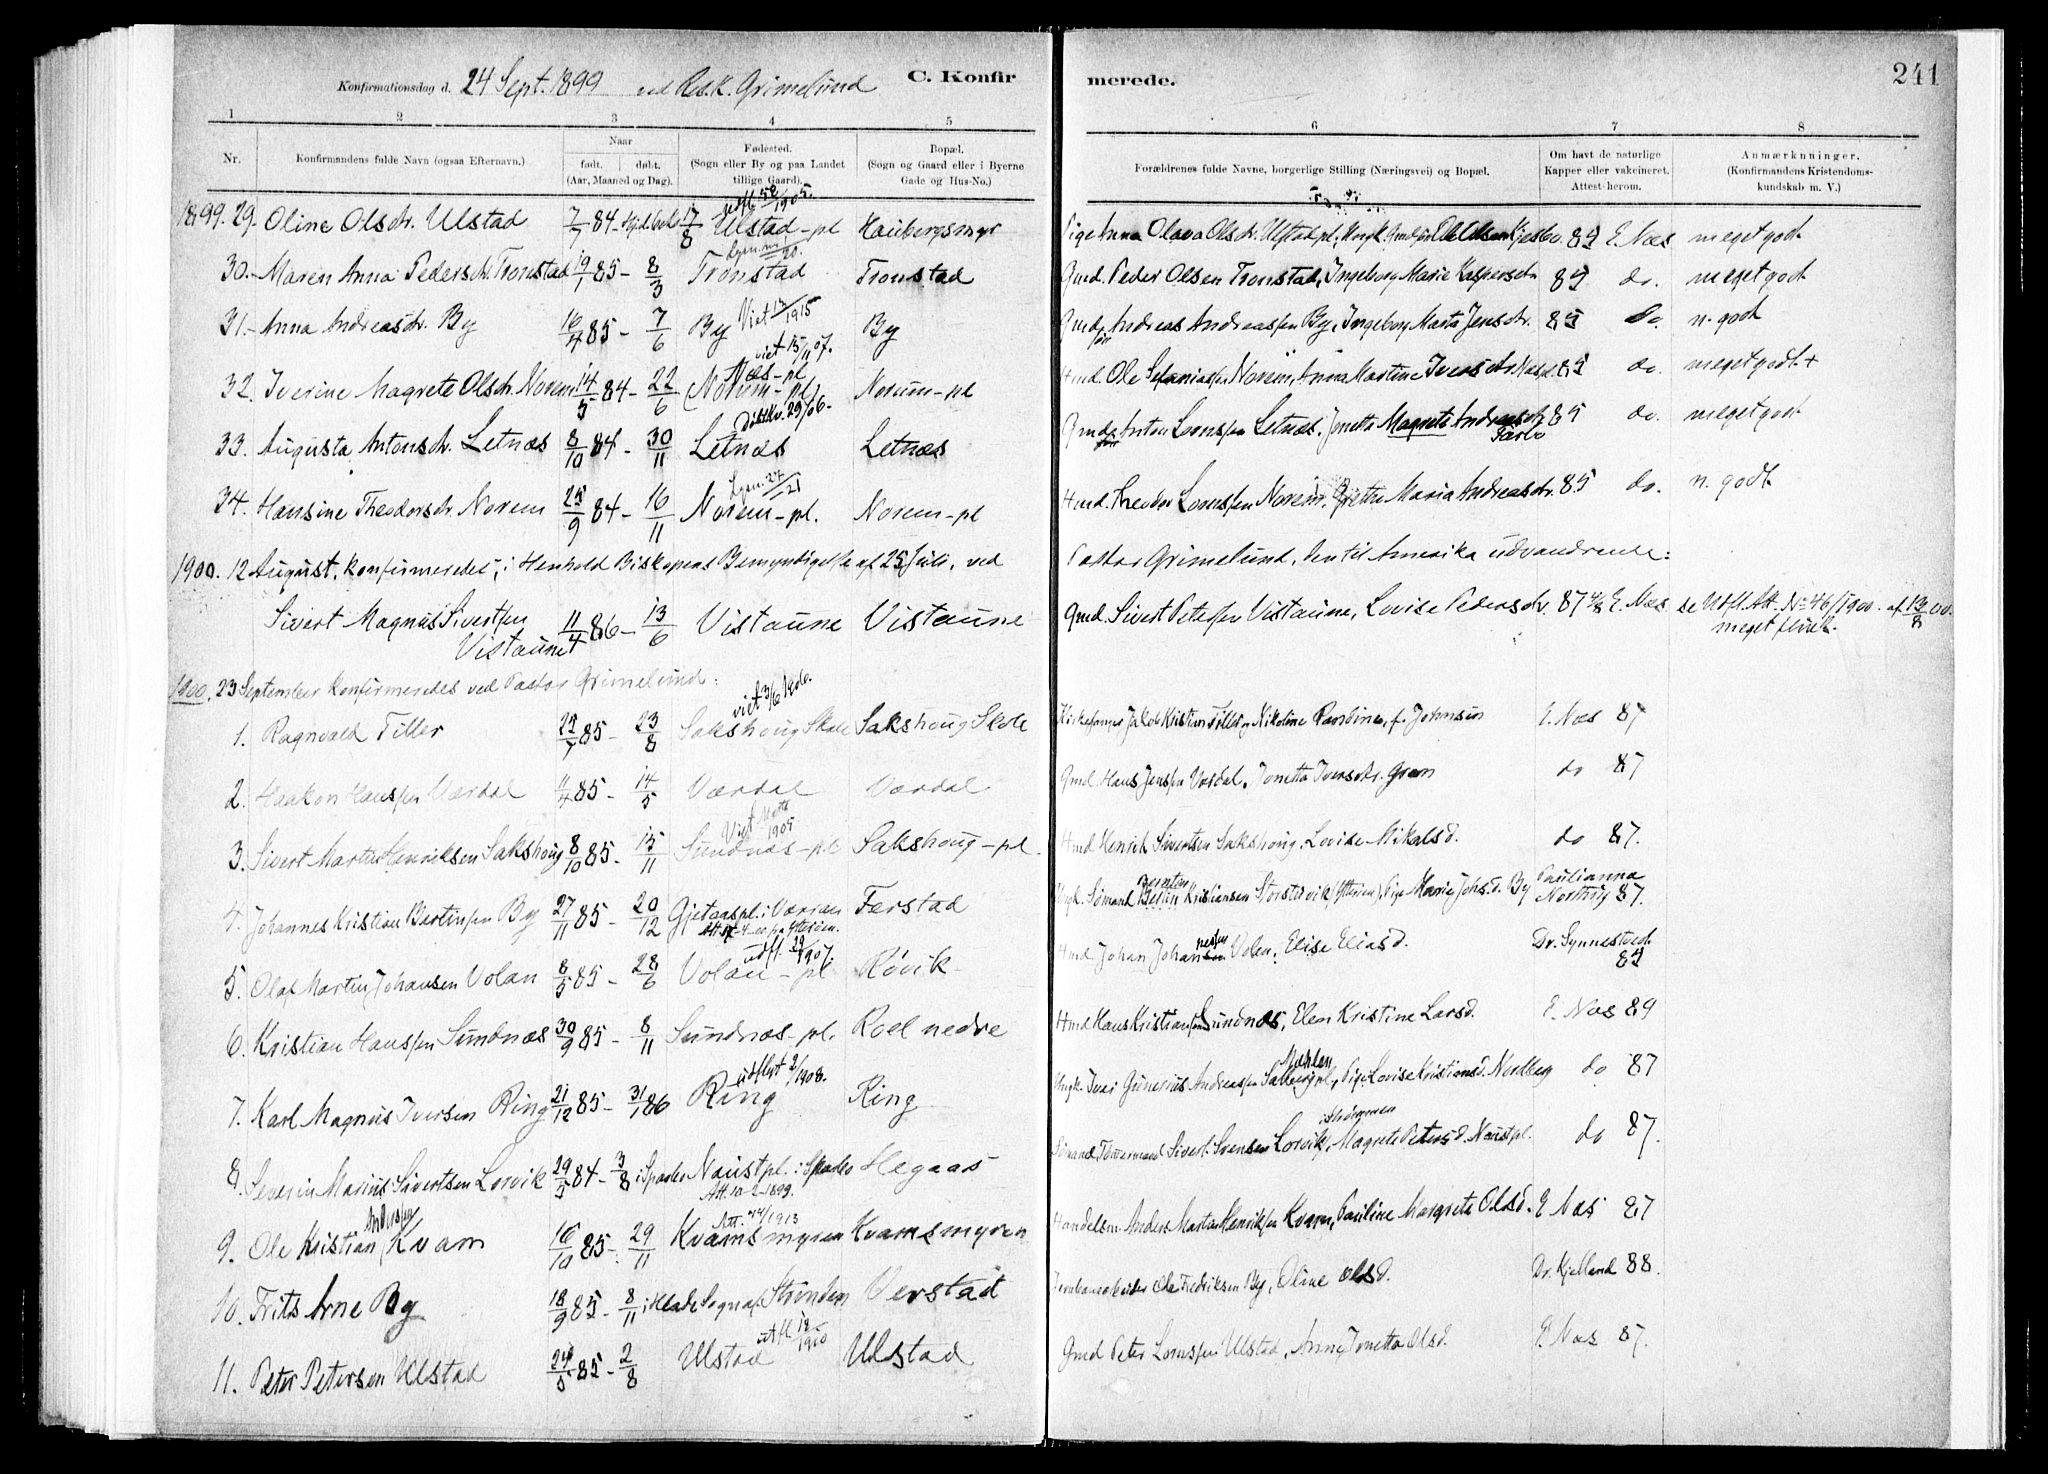 Konfirmationsdag d. 24 Sept. 1899 ved Res. K. Grimelund C. Konfir merede. 241
1 2 3 4 5 6 7 8
Nr. Konfirmandens fulde Navn (ogsaa Efternavn.) Naar født. døbt. (Aar, Maaned og Dag). Fødested. (Sogn eller By og paa Landet tillige Gaard). Bopæl. (Sogn og Gaard eller i Byerne Gade og Hus-No.) Forældrenes fulde Navne, borgerlige Stilling (Næringsvei) og Bopæl. Om havt de naturlige Kapper eller vakcineret. Attest herom. Anmærkninger. (Konfirmandens Kristendomskundskab m. V.)
1899. 29. Oline Olsdr. Ulstad 7/7 84 - 17/8 Ulstad-pl Haubergsmyr Pige Anna Olava Olsdr. Ulstad pl, Ungk. E. Næs meget godt
30. Maren Anna Pedersdr. Tronstad 19/1 85 - 8/3 Tronstad Tronstad Gmd. Peder Olsen Tronstad, Ingeborg Marie Kaspersdr. 89 do. meget godt
31. Anna Andreasdr. By 16/4 85 - 7/6 By Viet 1915 By Gmd. Andreas Andreassen By, Ingeborg Marta Jensdr. 85 do. n. godt
32. Iverine Magrete Olsdr. Norem 14/5 84 - 22/6 Næs-pl (Norum-pl) viet 15/11 07. Norum-pl Hmd. Ole Norem, Anna Martine Iversdr. do. meget godt +
33. Augusta Antonsdr. Letnæs 8/10 84 - 30/11 Letnæs Letnæs Gmd. Anton Lornssen Letnæs, Magrete Andreasdr. 85 do. meget godt
34. Hansine Theodorsdr. Norem 25/9 84 - 16/11 Norem-pl. Norem-pl Hmd. Theodor Lornssen Norem, Grethe Maria Andreasdr. 85 do. n. godt.
1900. 12 August, konfirmeredes, i Henhold Biskopens Bemyndigelse af 25 Juli, ved Pastor Grimelund, den til Amerika udvandrende:
Sivert Magnus Sivertsen Vistaunet 11/4 86 - 13/6 Vistaune Vistaune Gmd. Sivert Petersen Vistaune, Lovise Pedersdr. 87 E. Næs se Udfl. Att. No 46/1900. af 13/8 00. meget flink.
1900. 23 September konfirmeredes ved Pastor Grimelund:
1. Ragnvald Tiller 85 - 23/8 Sakshoug Skole viet 3/6 Sakshoug Skole Kirkesanger Jakob Kristian Tiller og Nikoline f. Johnsen E. Næs 87
2. Haakon Hanssen Værdal 11/4 85 - 14/5 Værdal Værdal Gmd. Hans Jenssen Værdal, Jonetta Iversdr. Gran do 87
3. Sivert Martin Henriksen Sakshoug 8/10 85 - 15/11 Sundnæs-pl Viet 1905 Sakshoug-pl. Hmd Henrik Sivertsen Sakshoug, Lovise Mikalsd. do 87.
4. Johannes Kristian Bartinsen By 27/11 85 - 20/12 Færstad Ungk. Sømand Kristiansen Pige Marie Johsd. By Paulianna 87.
5. Olaf Martin Johansen Volan 8/5 85 - 28/6 Volan-pl udfl. 1907. Røvik Hmd Johan Volan, Elise Eliasd. Dr. Synnestvedt 89
6. Kristian Hanssen Sundnæs 30/9 85 - 8/11 Sundnæs-pl. Roel nedre Hmd Hans Kristiansen Sundnæs, Elen Kristine Larsd. E. Næs 89
7. Karl Magnus Iversen Ring 21/12 85 - 31/1 86 Ring udflyt 2/1908. Ring Ungk. Ivar Gunerius Andreassen Sakshoug pl, Pige Lovise Kristiansd. Nordberg do 87
8. Severin Marius Sivertsen Lorvik 29/5 84 - 3/8 i Sparbo Naustpl. i Sparbo Att. 10-2-1899. Hegaas Sømand Sivert Svensen Lorvik, Magrete Petersd. Naustpl. do 87.
9. Ole Kristian Anderssen Kvam 16/10 85 - 29/11 Kvamsmyren Att. 44/1913 Kvamsmyren Handelsm. Anders Martin Henriksen Kvam, Pauline Margrete Olsd. E Næs 87
10. Frits Arne By 18/9 85 - 8/11 i Hlade Sogn af Strinden Verstad Jernbanearbeider Ole Fredriksen By, Oline Olsd. Dr. Kjelland 88.
11. Peter Petersen Ulstad 24/5 85 - 2/8 Ulstad utfl. 1910 Ulstad Gmd Peter Lornssen Ulstad, Anne Jonetta Olsd. E. Næs 87.